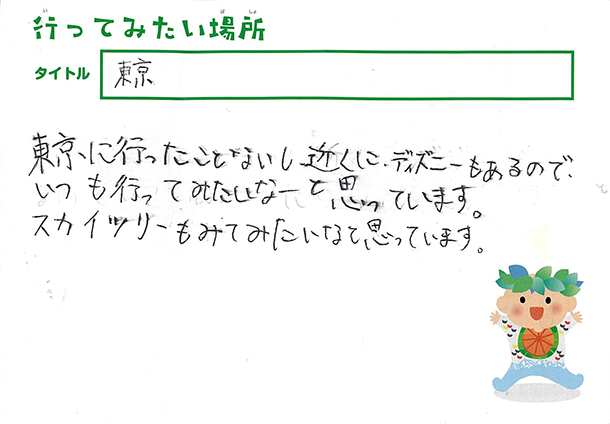 行ってみたい場所
タイトル 東京
東京に行ったことないし近くに、ディズニーもあるので、
いつも行ってみたいなーと思っています。
スカイツリーもみてみたいなと思っています。